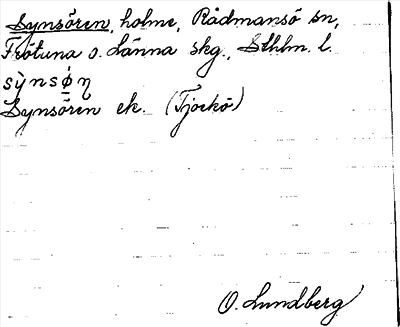 Synsören, holme, Rådmansö sn,
Frötuna o. Länna skg., Sthlm. l.
sỳnsø̣̀η
Synsören ek. (Tjockö)
O. Lundberg